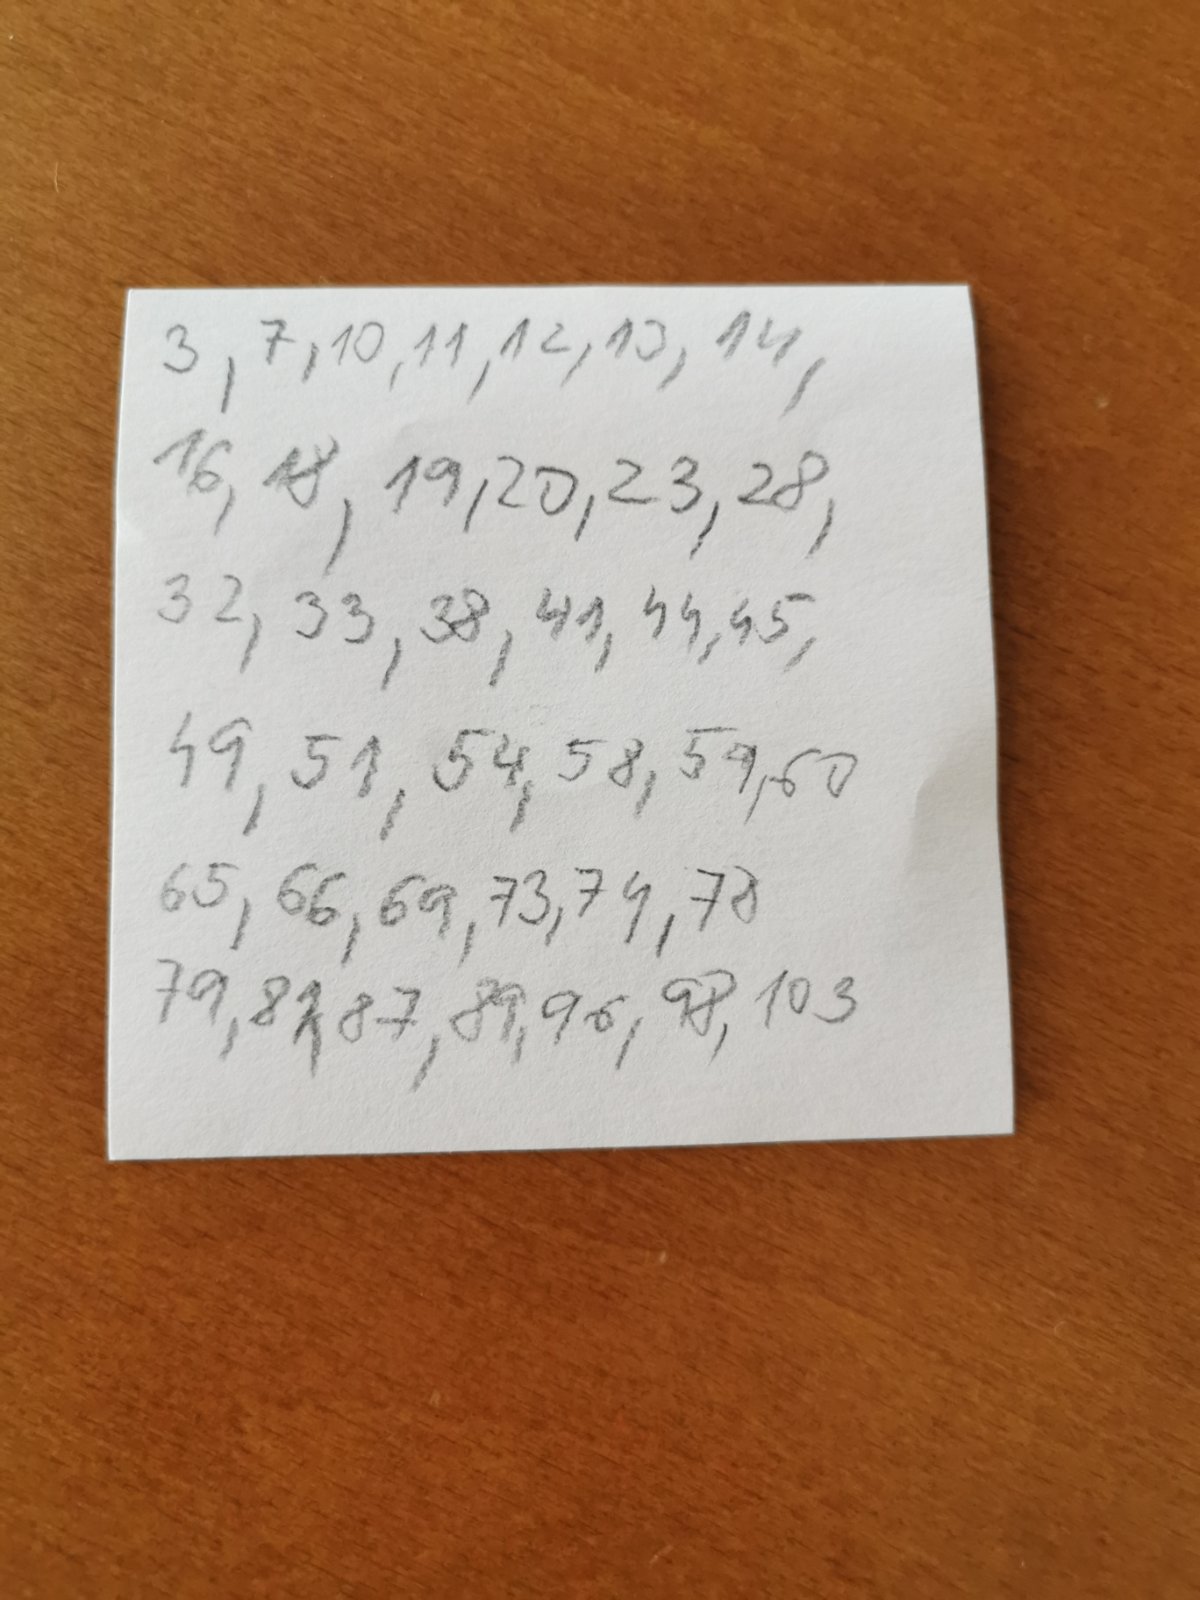 3, 7, 10, 11, 12, 13, 14,
16, 18, 19, 20, 23, 28,
32, 33, 38, 41, 44, 45,
49, 51, 54, 58, 59, 60
65, 66, 69, 73, 74, 78
79, 81, 87, 89, 96, 98, 103